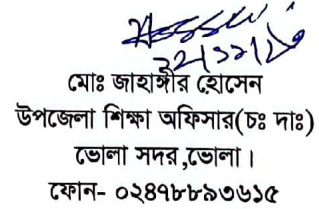 মোঃ জাহাঙ্গীর হোসেন
উপজেলা শিক্ষা অফিসার(চঃ দাঃ)
ভোলা সদর,ভোলা।
ফোন- ০২৪৭৮৮৯৩৬১৫